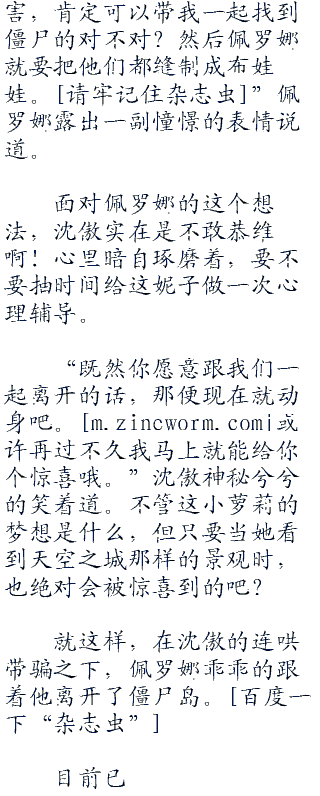 害，肯定可以带我一起找到
僵尸的对不对？然后佩罗娜
就要把他们都缝制成布娃
娃。[请牢记住杂志虫]”佩
罗娜露出一副憧憬的表情说
道。
面对佩罗娜的这个想
法，沈傲实在是不敢恭维
啊！心里暗自琢磨着，要不
要抽时间给这妮子做一次心
理辅导。
“既然你愿意跟我们一
起离开的话，那便现在就动
身吧。[m.zincworm.com|或
许再过不久我马上就能给你
个惊喜哦。”沈傲神秘兮兮
的笑着道。不管这小萝莉的
梦想是什么，但只要当她看
到天空之城那样的景观时，
也绝对会被惊喜到的吧？
就这样，在沈傲的连哄
带骗之下，佩罗娜乖乖的跟
着他离开了僵尸岛。[百度一
下“杂志虫”]
目前已